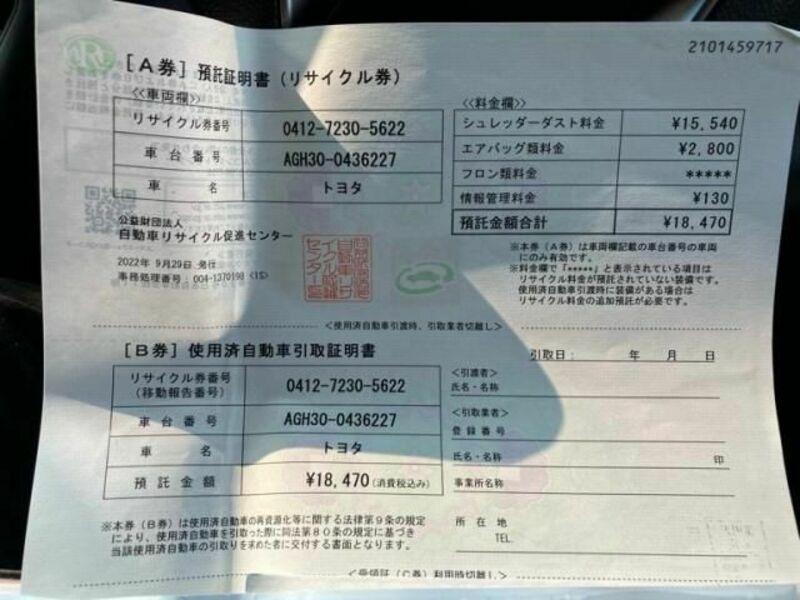 2101459717
[A券] 預託証明書(リサイクル券)
≪車両欄≫
リサイクル券番号 0412-7230-5622
車台番号 AGH30-0436227
車名 トヨタ
≪料金欄≫
シュレッダーダスト料金 ¥15,540
エアバッグ類料金 ¥2,800
フロン類料金 *****
情報管理料金 ¥130
預託金額合計 ¥18,470
公益財団法人
自動車リサイクル促進センター
2022年 9月29日 発行
事務処理番号:004-1370198 <1S>
※本券(A券)は車両欄記載の車台番号の車両
にのみ有効です。
※料金欄で「*****」と表示されている項目は
リサイクル料金が預託されていない装備です。
使用済自動車引渡時に装備がある場合は
リサイクル料金の追加預託が必要です。
<使用済自動車引渡時、引取業者切離し>
[B券] 使用済自動車引取証明書
リサイクル券番号
(移動報告番号) 0412-7230-5622
車台番号 AGH30-0436227
車名 トヨタ
預託金額 ¥18,470(消費税込み)
引取日: 年 月 日
<引渡者>
氏名・名称
<引取業者>
登録番号
氏名・名称 印
事業所名称
所在地
TEL
※本券(B券)は使用済自動車の再資源化等に関する法律第9条の規定
により、使用済自動車を引取った際に同法第80条の規定に基づき
当該使用済自動車の引取りを求めた者に交付する書面となります。
<受領証(C券)利用時切離し>